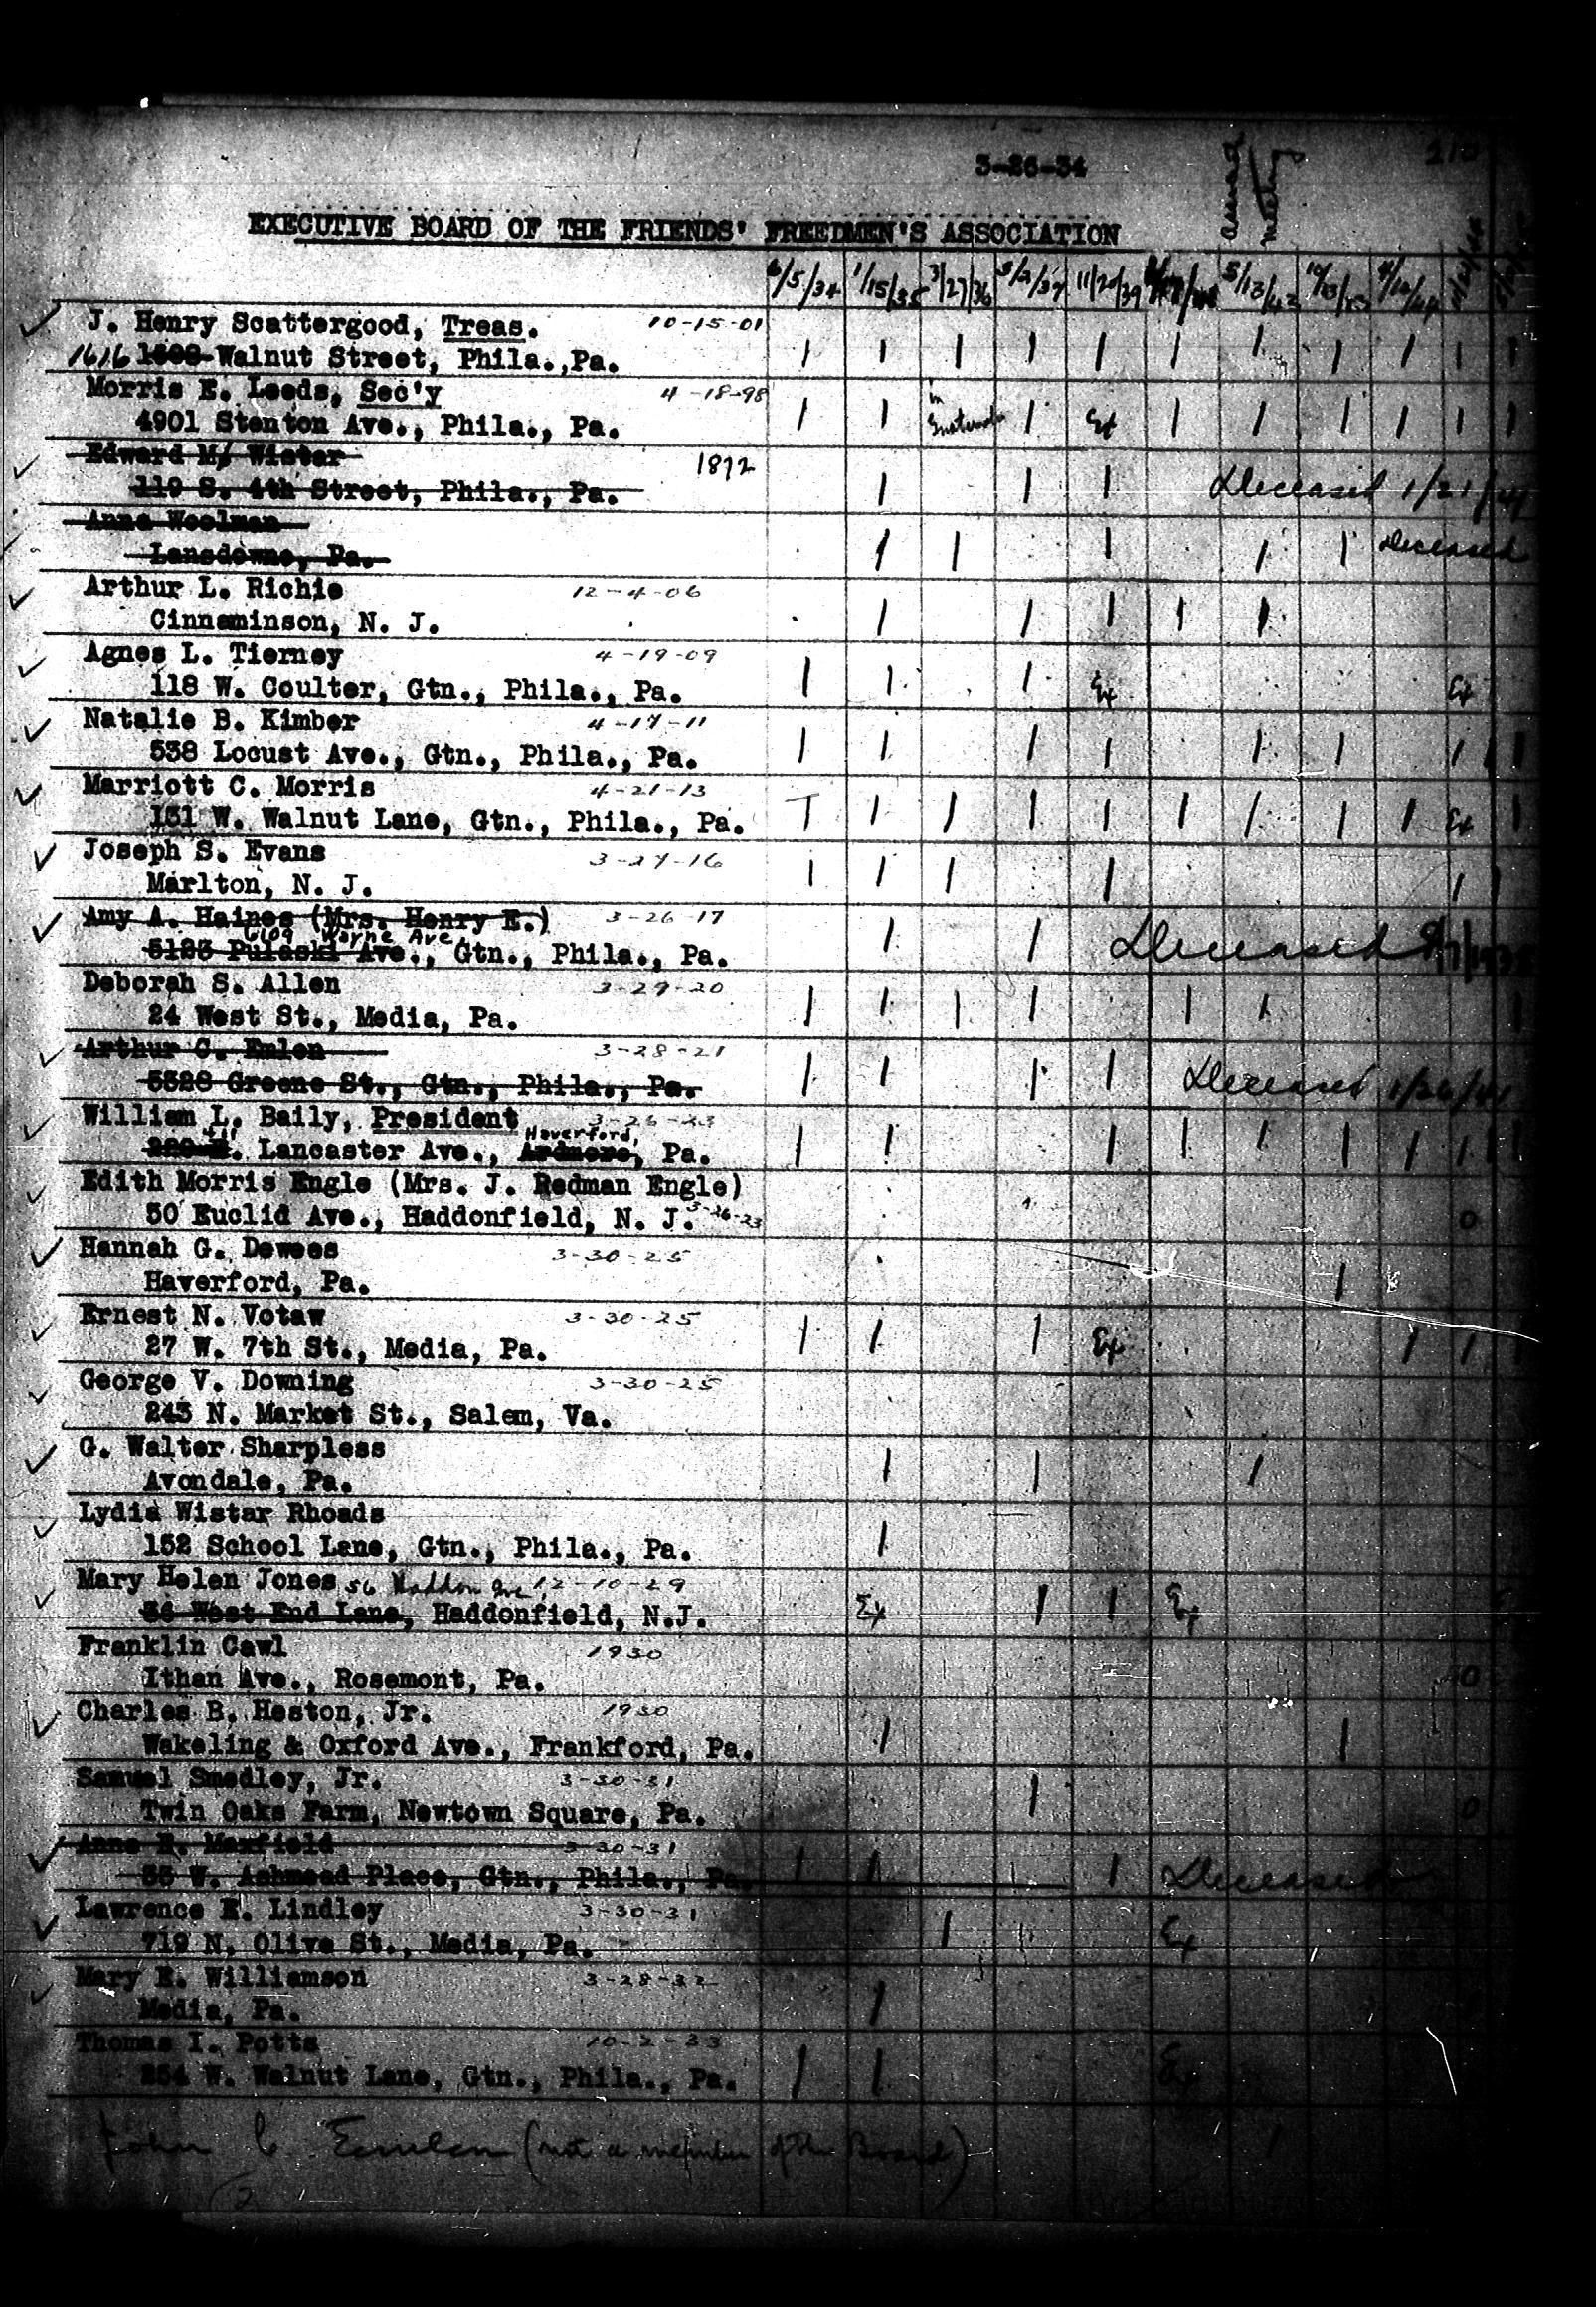 3-26-34
Annual
meeting
210
EXECUTIVE BOARD OF THE FRIENDS' FREEDMEN'S ASSOCIATION
6/5/34 1/15/35 3/27/36 5/2/37 11/20/39 5/13/43 10/13/43 4/12/44
J. Henry Scattergood, Treas. 10-15-01
1616 Walnut Street, Phila., Pa.
Morris E. Leeds, Sec'y 4-18-98 in
4901 Stenton Ave., Phila., Pa. Ex
Edward M. Wistar 1872
119 S. 4th Street, Phila., Pa. Deceased 1/21/41
Anna Woolman
Lansdowne, Pa. Deceased
Arthur L. Richie 12-4-06
Cinnaminson, N. J.
Agnes L. Tierney 4-19-09
118 W. Coulter, Gtn., Phila., Pa. Ex Ex
Natalie B. Kimber 4-17-11
538 Locust Ave., Gtn., Phila., Pa.
Marriott C. Morris 4-21-13
131 W. Walnut Lane, Gtn., Phila., Pa. Ex
Joseph S. Evans 3-27-16
Marlton, N. J.
Amy A. Haines (Mrs. Henry E.) 3-26-17
6109 Wayne Ave.
5123 Pulaski Ave., Gtn., Phila., Pa. Deceased
Deborah S. Allen 3-29-20
24 West St., Media, Pa.
Arthur C. Emlen 3-28-21
5328 Greene St., Gtn., Phila., Pa. Deceased 1/26/41
William L. Baily, President 3-26-23
Haverford,
Lancaster Ave., Ardmore, Pa.
Edith Morris Engle (Mrs. J. Redman Engle)
50 Euclid Ave., Haddonfield, N. J. 3-26-23 0
Hannah G. Dewees 3-30-25
Haverford, Pa.
Ernest N. Votaw 3-30-25
27 W. 7th St., Media, Pa. Ex
George V. Downing 3-30-25
243 N. Market St., Salem, Va.
G. Walter Sharpless
Avondale, Pa.
Lydia Wistar Rhoads
152 School Lane, Gtn., Phila., Pa.
Mary Helen Jones 56 Haddon Ave 12-10-29
36 West End Lane, Haddonfield, N.J. Ex Ex
Franklin Cawl 1930
Ithan Ave., Rosemont, Pa. 0
Charles B. Heston, Jr. 1930
Wakeling & Oxford Ave., Frankford, Pa.
Samuel Smedley, Jr. 3-30-31
Twin Oaks Farm, Newtown Square, Pa. 0
Anna R. Maxfield 3-30-31
35 W. Ashmead Place, Gtn., Phila., Pa. Deceased
Lawrence E. Lindley 3-30-31
719 N. Olive St., Media, Pa. Ex
Mary E. Williamson 3-28-32
Media, Pa.
Thomas I. Potts 10-2-33
254 W. Walnut Lane, Gtn., Phila., Pa. Ex
John C. Emlen (not a member of the Board)